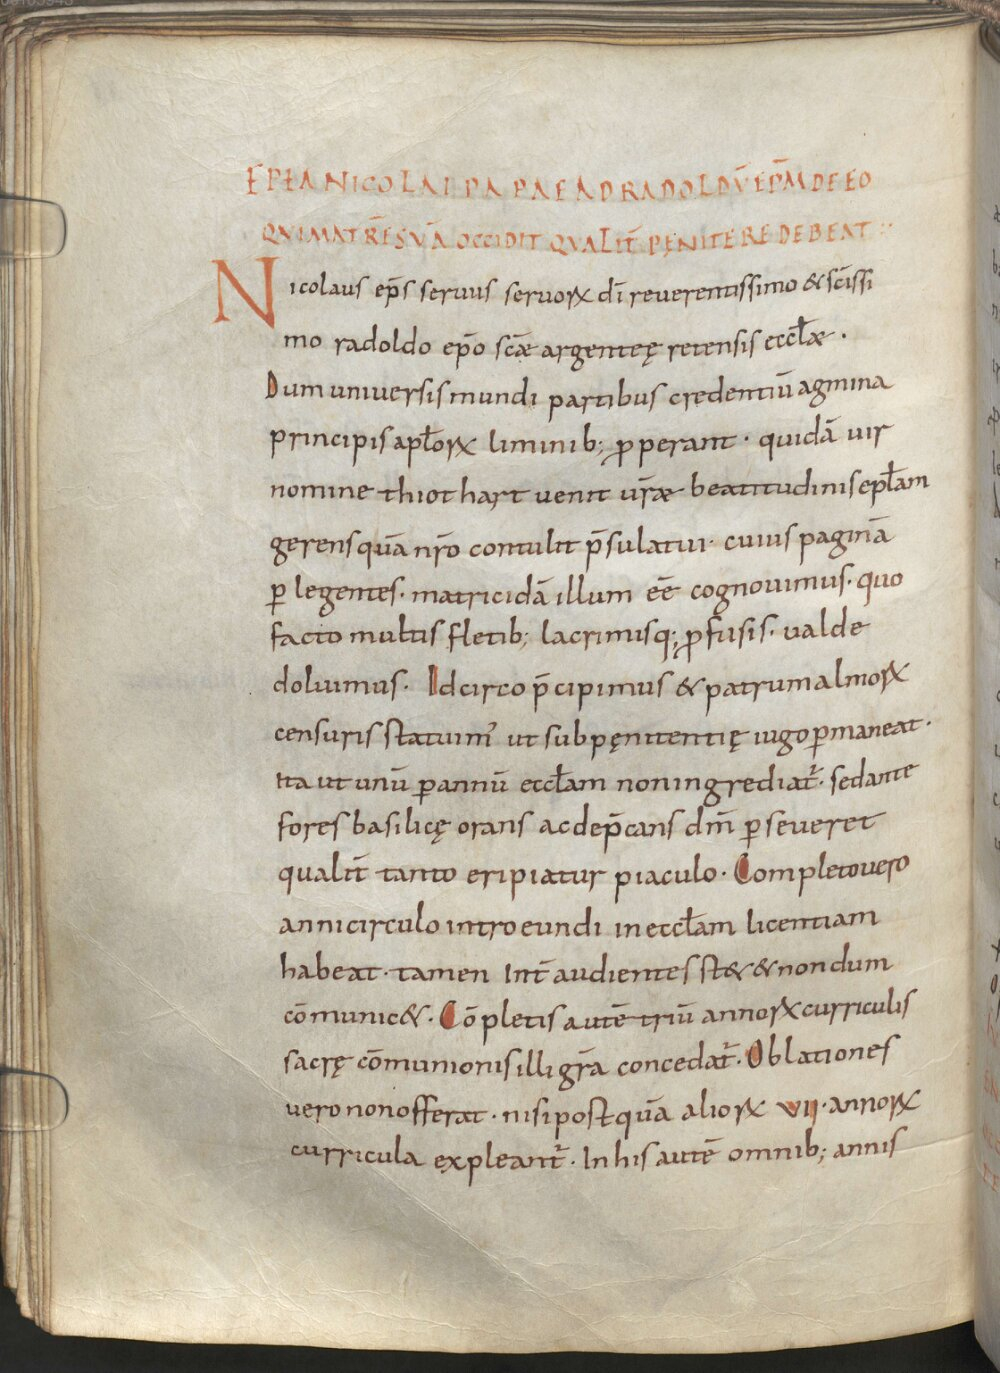 EPŁA NICOLAI PAPAE AD RADOLDŪ EP̄M DE EO
QVI MATRĒ SVĀ OCCIDIT QVALIT̄ PĘNITERE DEBEAT
Nicolaus ep̄s seruus seruoꝝ dī reuerentissimo & sc̄issi
mo radoldo ep̄o sc̄æ argenteę retensis eccłæ .
Dum uniuersis mundi partibus credentiū agmina
principis apłoꝝ liminib; ꝓperant · quidā uir
nomine thiothart uenit ur̄æ beatitudinis epłam
gerens quā nr̄o contulit p̄sulatui · cuius paginā
ꝑlegentes · matricidā illum eē cognouimus · quo
facto multis fletib; lacrimisq; ꝓfusis · ualde
doluimus · Idcirco p̄cipimus & patrum almoꝝ
censuris statuim᾽ ut sub pęnitentię iugo ꝑmaneat ·
ita ut unū ꝑ annū eccłam non ingrediat᷑ · sed ante
fores basilicę orans ac dep̄cans dm̄ ꝑseueret
qualit̄ tanto eripiatur piaculo · Completo uero
anni circulo introeundi in eccłam licentiam
habeat · tamen int̄ audientes st& & nondum
cōmunic& · Cōpletis autē triū annoꝝ curriculis
sacrę cōmunionis illi gr̄a concedat᷑ · Oblationes
uero non offerat · nisi postquā alioꝝ VII · annoꝝ
curricula expleant᷑ · In his autē omnib; annis